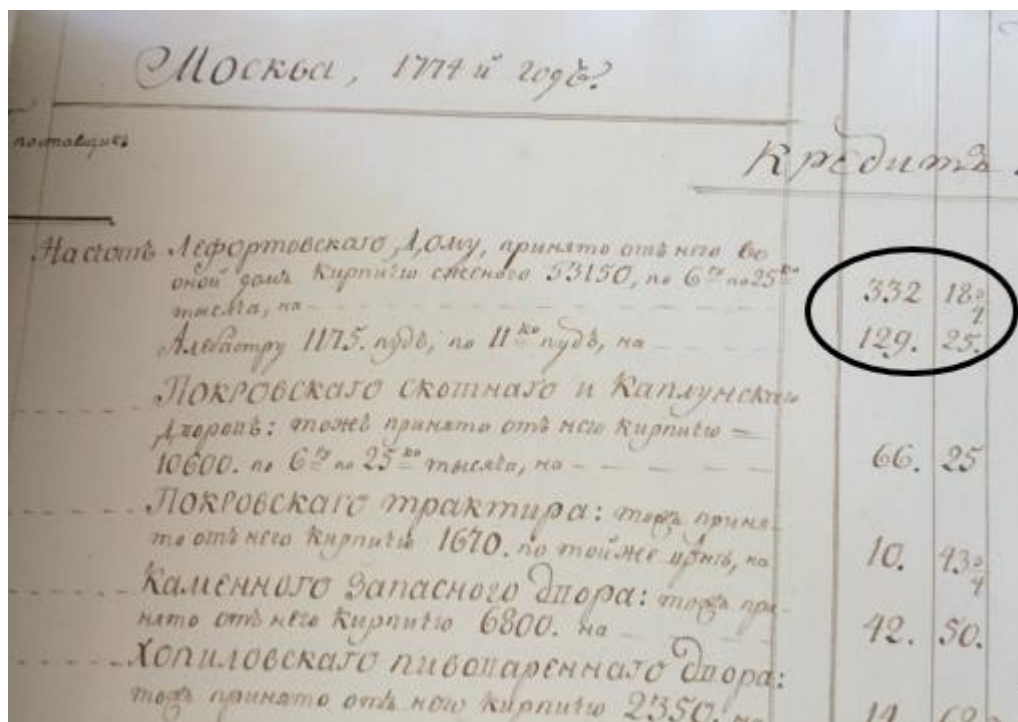 Москва, 1774 й годъ.
поставщикъ
Кредитъ.
На счотъ Лефортовскаго Дому, принято отъ него во
оной домъ кирпичю сженого 53150, по 6 ру по 25 ко
тысяча, на 332 18 3/4
Алебастру 1175. пудъ, по 11 ко пудъ, на 129. 25.
Покровскаго скотнаго и Каплунскаго
Дворовъ: тожъ принято отъ него кирпичю =
10600. по 6 ру по 25 ко тысяча, на 66. 25
Покровскаго трактира: тожъ приня-
то отъ него кирпичю 1670. по той же цѣнѣ, на 10. 43 3/4
Каменного Запасного двора: тожъ при-
нято отъ него кирпичю 6800. на 42. 50.
Хопиловскаго пивовареннаго двора:
тожъ принято отъ него кирпичю 2350. на 14. 68